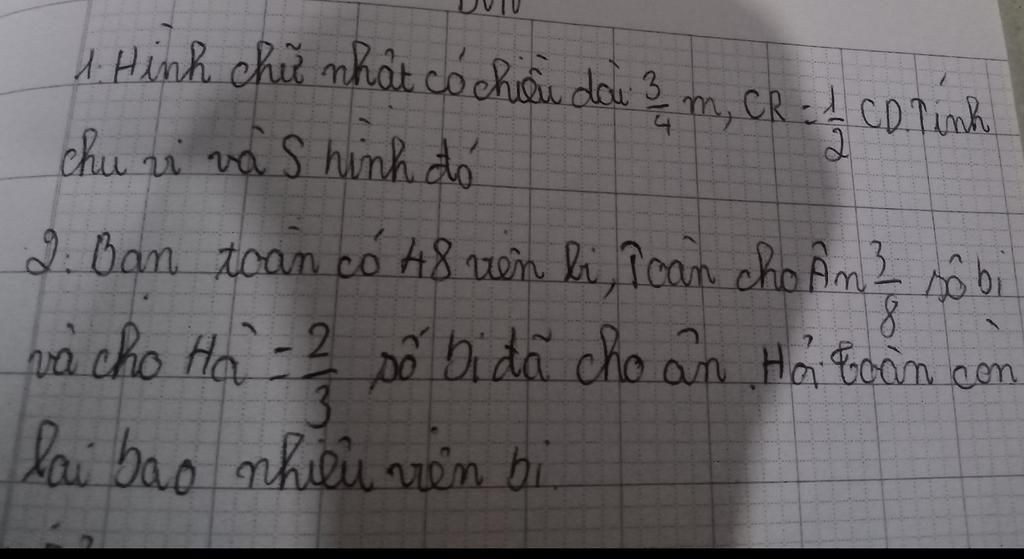 1. Hình chữ nhật có chiều dài 3/4 m, CR = 1/2 CD. Tính
chu vi và S hình đó
2. Bạn toàn có 48 viên bi, Toàn cho Ân 3/8 số bi
và cho Hà = 2/3 số bi đã cho ân. Hỏi toàn còn
lại bao nhiêu viên bi.